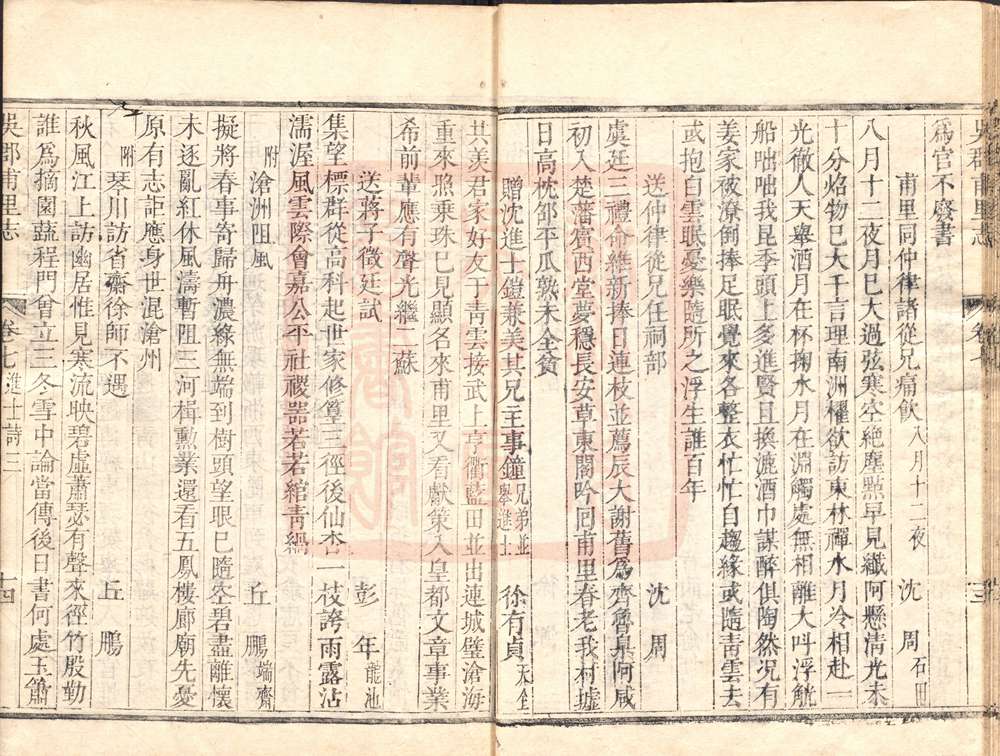 吳郡甫里志 卷七 三
為官不廢書
甫里同仲律諸從兄痛飲八月十二夜 沈周石田
八月十二夜月巳大過弦寒空絶塵㸃早見纖阿懸清光未
十分焰物巳大千言理南洲櫂欲訪東林禪水月冷相赴一
光徹人天舉酒月在杯掬水月在淵觸處無相離大呌浮觥
船咄咄我昆季頭上多進賢日換漉酒巾謀醉俱陶然况有
姜家被潦倒捧足眠覺來各整衣忙忙自趨緣或隨青雲去
或抱白雲眠憂樂隨所之浮生誰百年
送仲律從兄任祠部 沈周
虞廷三禮命維新捧日連枝並薦辰大謝舊為齊魯臬阿咸
初入楚藩賔西堂夢穩長安草東閣吟囘甫里春老我村墟
日高枕邵平瓜熟未全貧
贈沈進士鎧兼美其兄主事鐘兄弟並舉進士 徐有貞天全
共羙君家好友于青雲接武上亨衢藍田並出連城璧滄海
重來照乗珠巳見顯名來甫里又看獻策入皇都文章事業
希前軰應有聲光繼二蘇
送蔣子徵廷試 彭年龍池
集望標群從高科起世家修篁三徑後仙杏一枝誇雨露沾
濡渥風雲際會嘉公平社稷器若若綰青緺
附 滄洲阻風 丘鵬端齋
擬將春事寄歸舟濃綠無端到樹頭望眼巳隨空碧盡離懷
未逐亂紅休風濤暫阻三河楫勲業還看五鳳樓廊廟先憂
原有志詎應身世混滄州
附 琴川訪省齋徐師不遇 丘鵬
秋風江上訪幽居惟見寒流映碧虛蕭瑟有聲來徑竹殷勤
誰為摘園蔬程門曾立三冬雪中論當傳後日書何處玉簫
吳郡甫里志 卷七進士詩三 十四